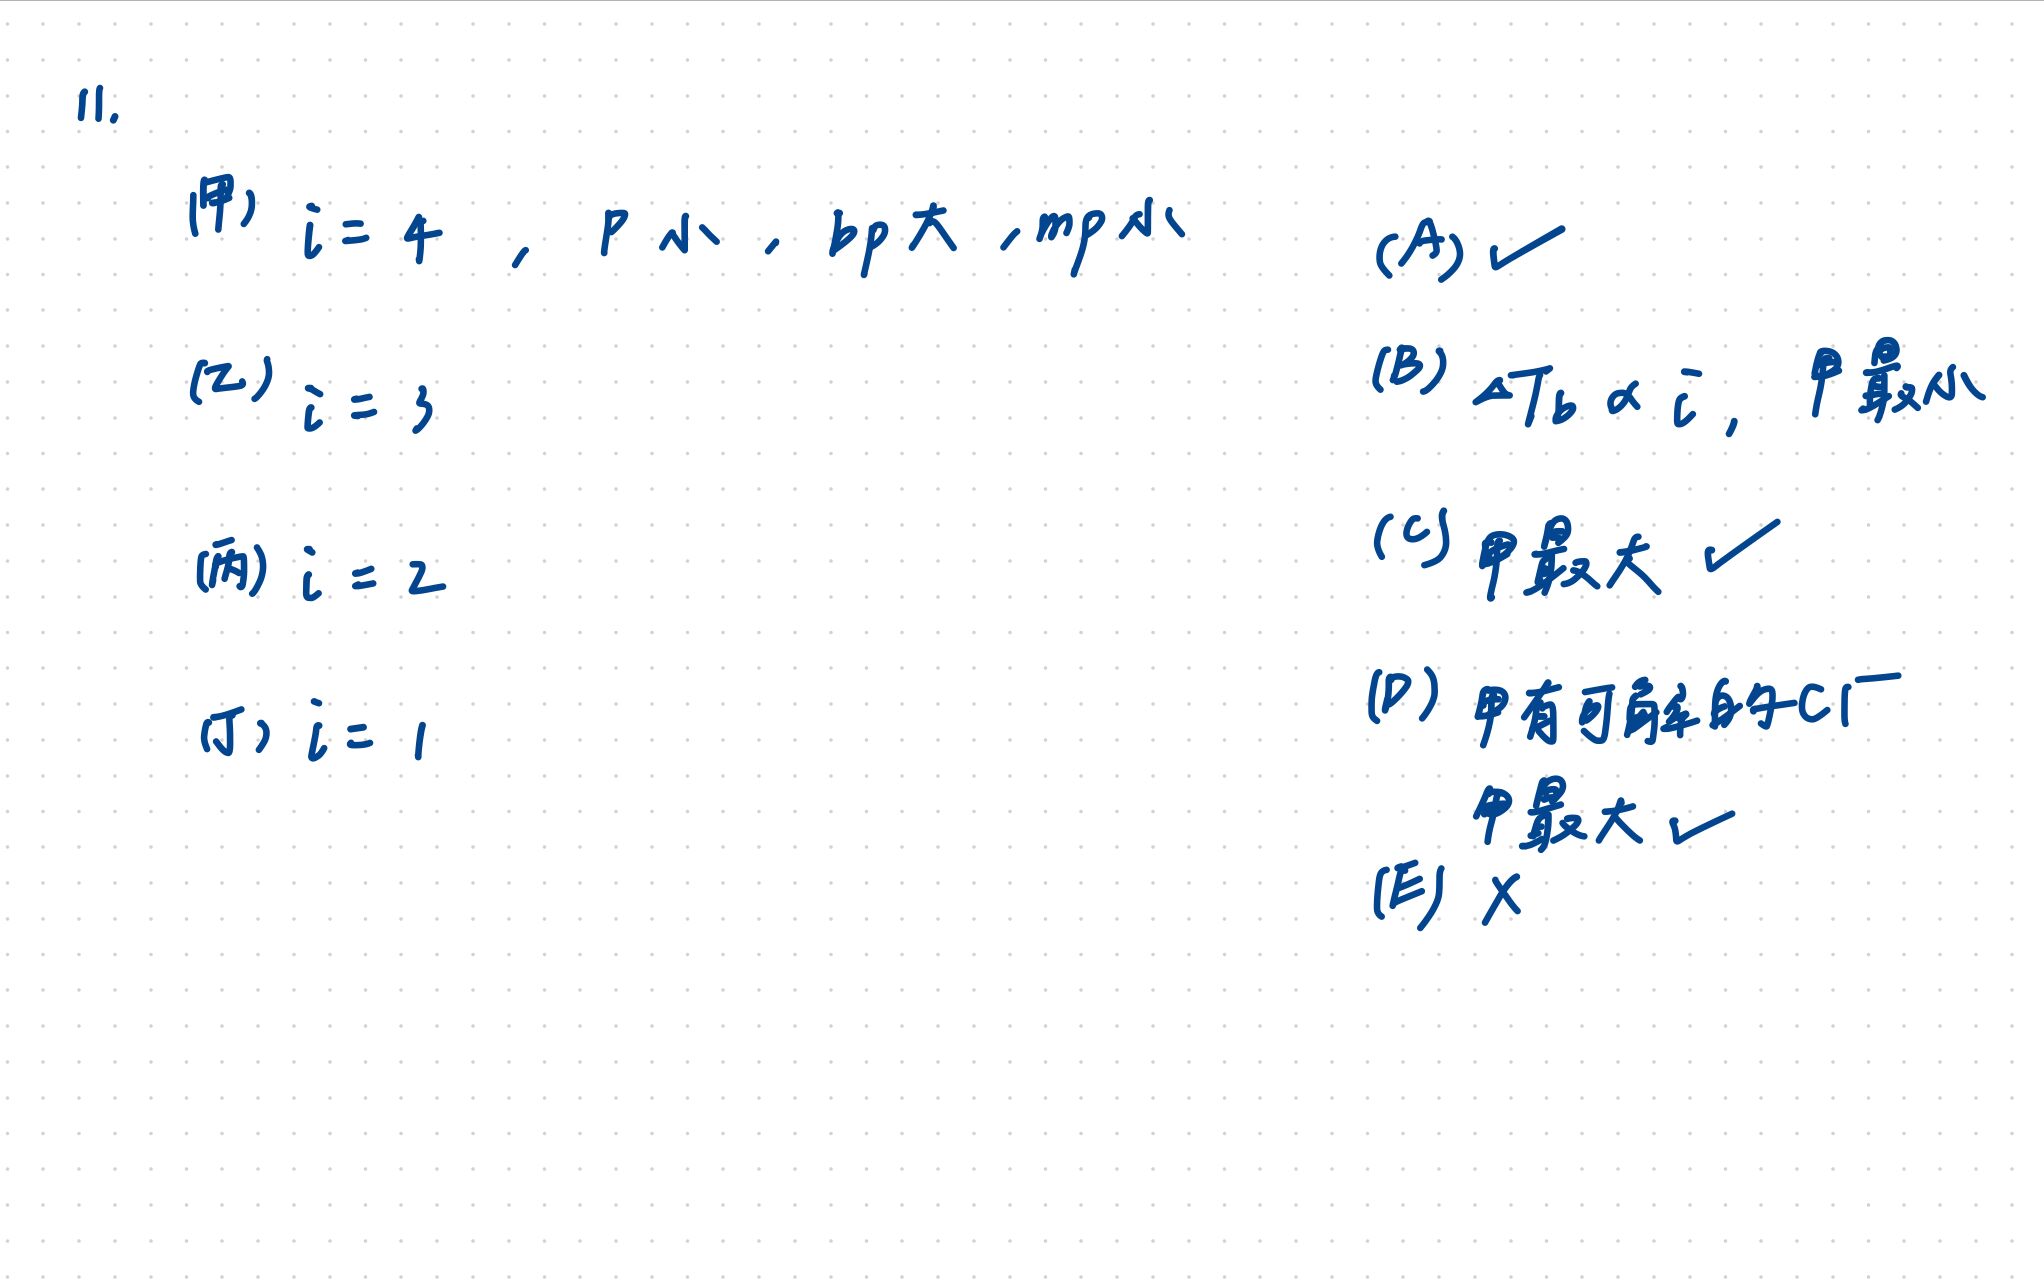 11.
(甲) i = 4 , P 小 , bp 大 , mp 小
(乙) i = 3
(丙) i = 2
(丁) i = 1
(A) ✓
(B) ΔTb ∝ i , 甲最小
(C) 甲最大 ✓
(D) 甲有可解的 Cl⁻
甲最大 ✓
(E) X